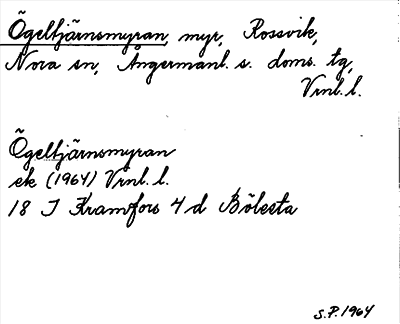 Ögeltjärnsmyran, myr, Rossvik,
Nora sn, Ångermanl. s. doms. tg,
Vrnl. l.
Ögeltjärnsmyran
ek (1964) Vrnl. l.
18 I Kramfors 4 d Bölesta
S.P. 1964